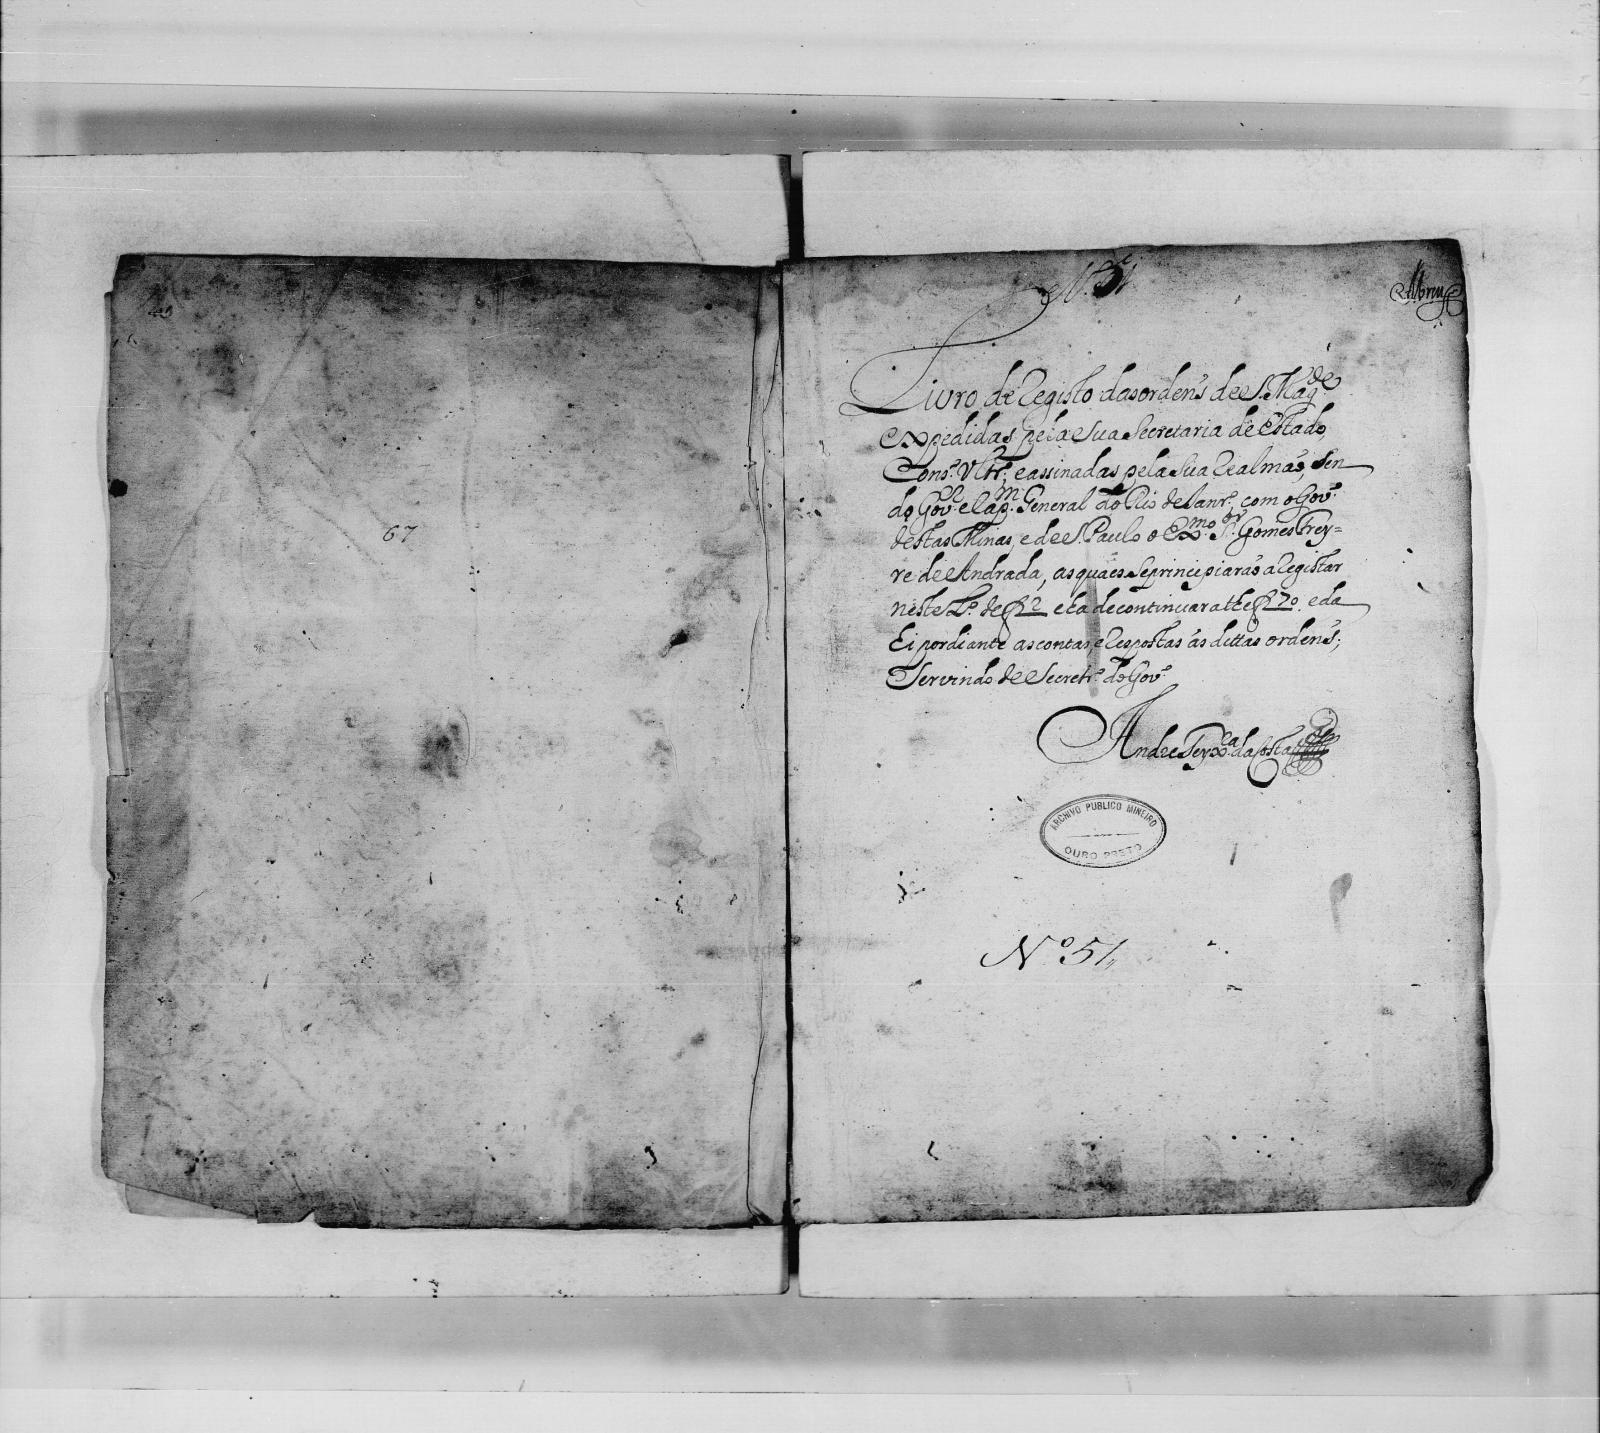 67
N.º 51
Abreu
Livro de Registo das ordens de S. Mag.de
expedidas pela Sua Secretaria de Estado,
Cons.º Ultr.º, e assinadas pela Sua Real mão, Sen
do Gov.or e Cap.m General do Rio de Janr.º com o Gov.º
destas Minas, e de S. Paulo o Ex.mo S.or Gomes Frey=
re de Andrada, as quaes se principiarão a Registar
neste L.º de f 2 e ha de continuar athe f 270. e da
hi por diante as contas, e Respostas ás dittas ordens;
Servindo de Secretr.º do Gov.º
Andre Teyx.ra da Costa
ARCHIVO PUBLICO MINEIRO
OURO PRETO
Nº 51